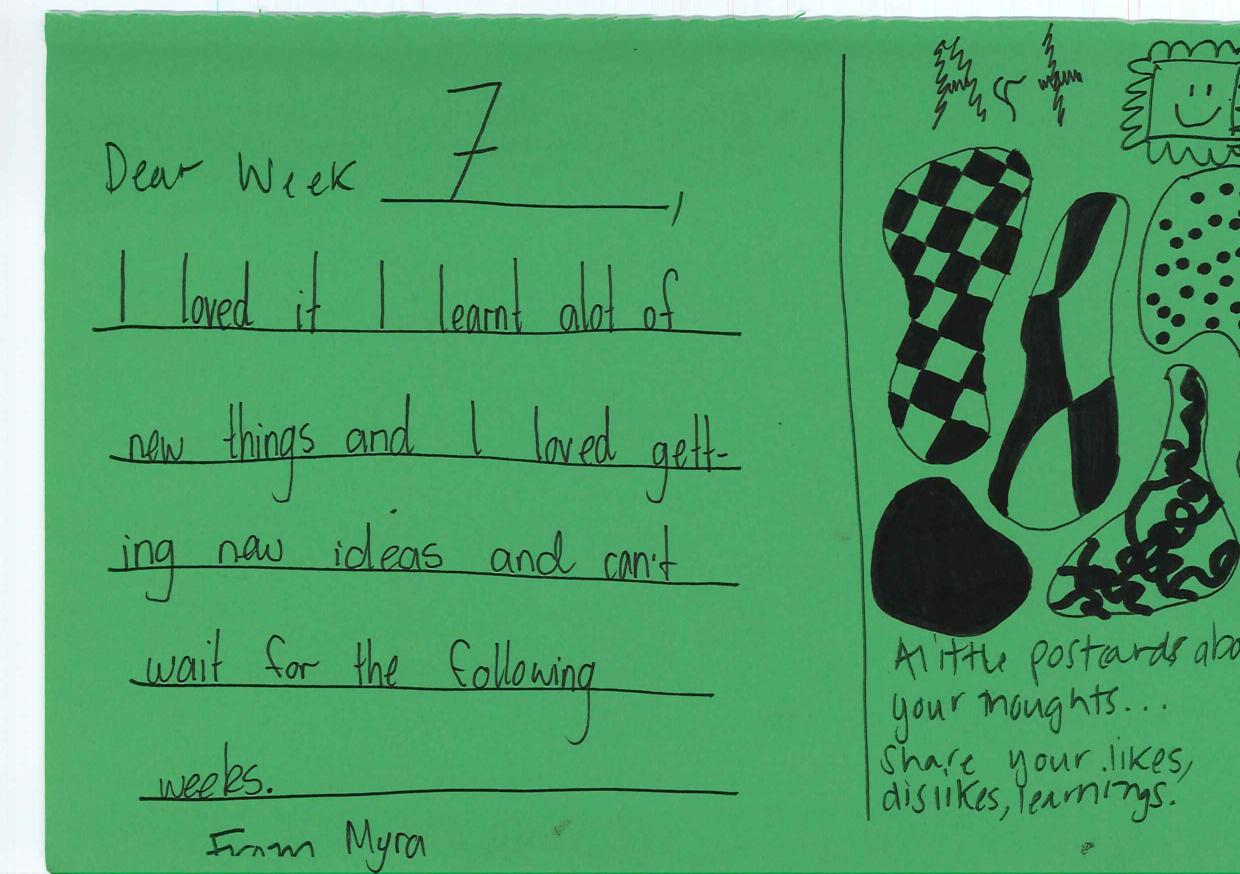 Dear Week 7,
I loved it I learnt alot of
new things and I loved gett-
ing new ideas and can't
wait for the following
weeks.
From Myra
A little postcards abo
your thoughts...
Share your likes,
dislikes, learnings.